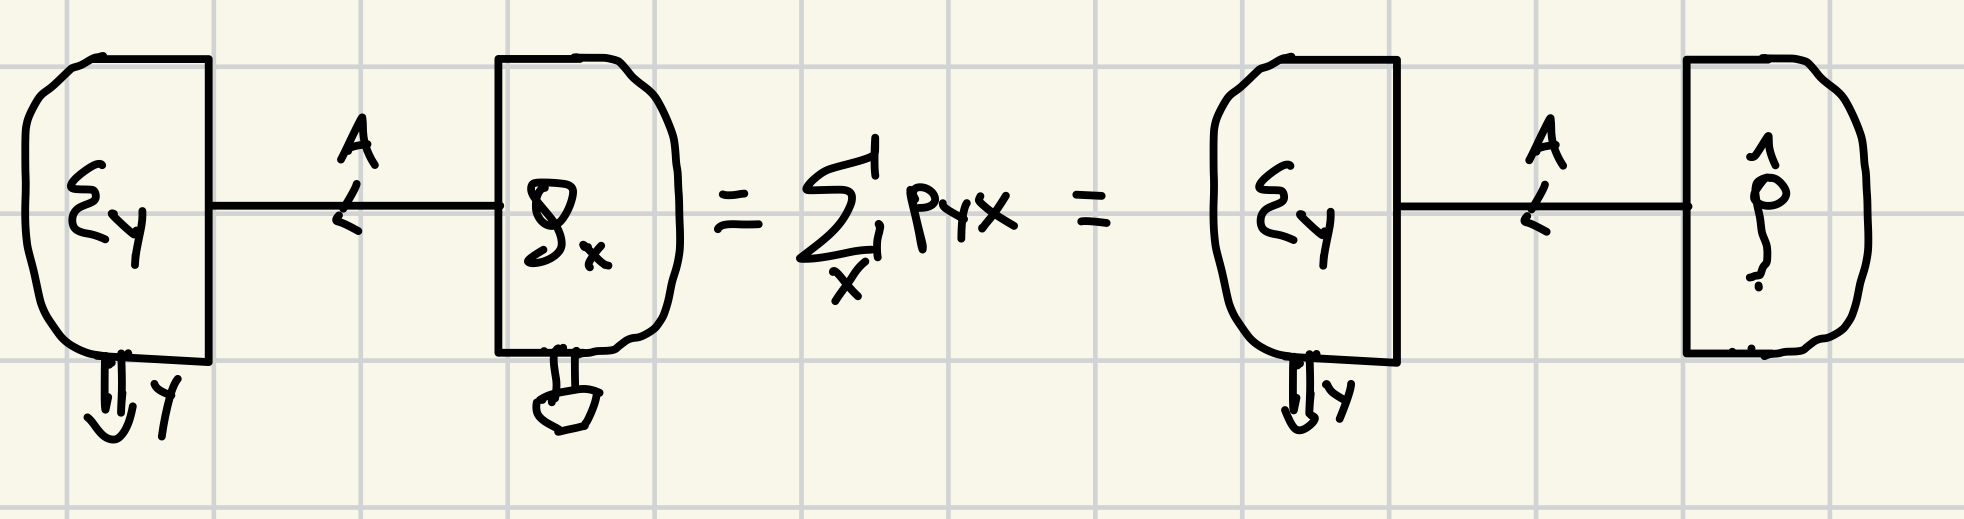 εy A ρx = Σx pyx = εy A ρ̂
y y